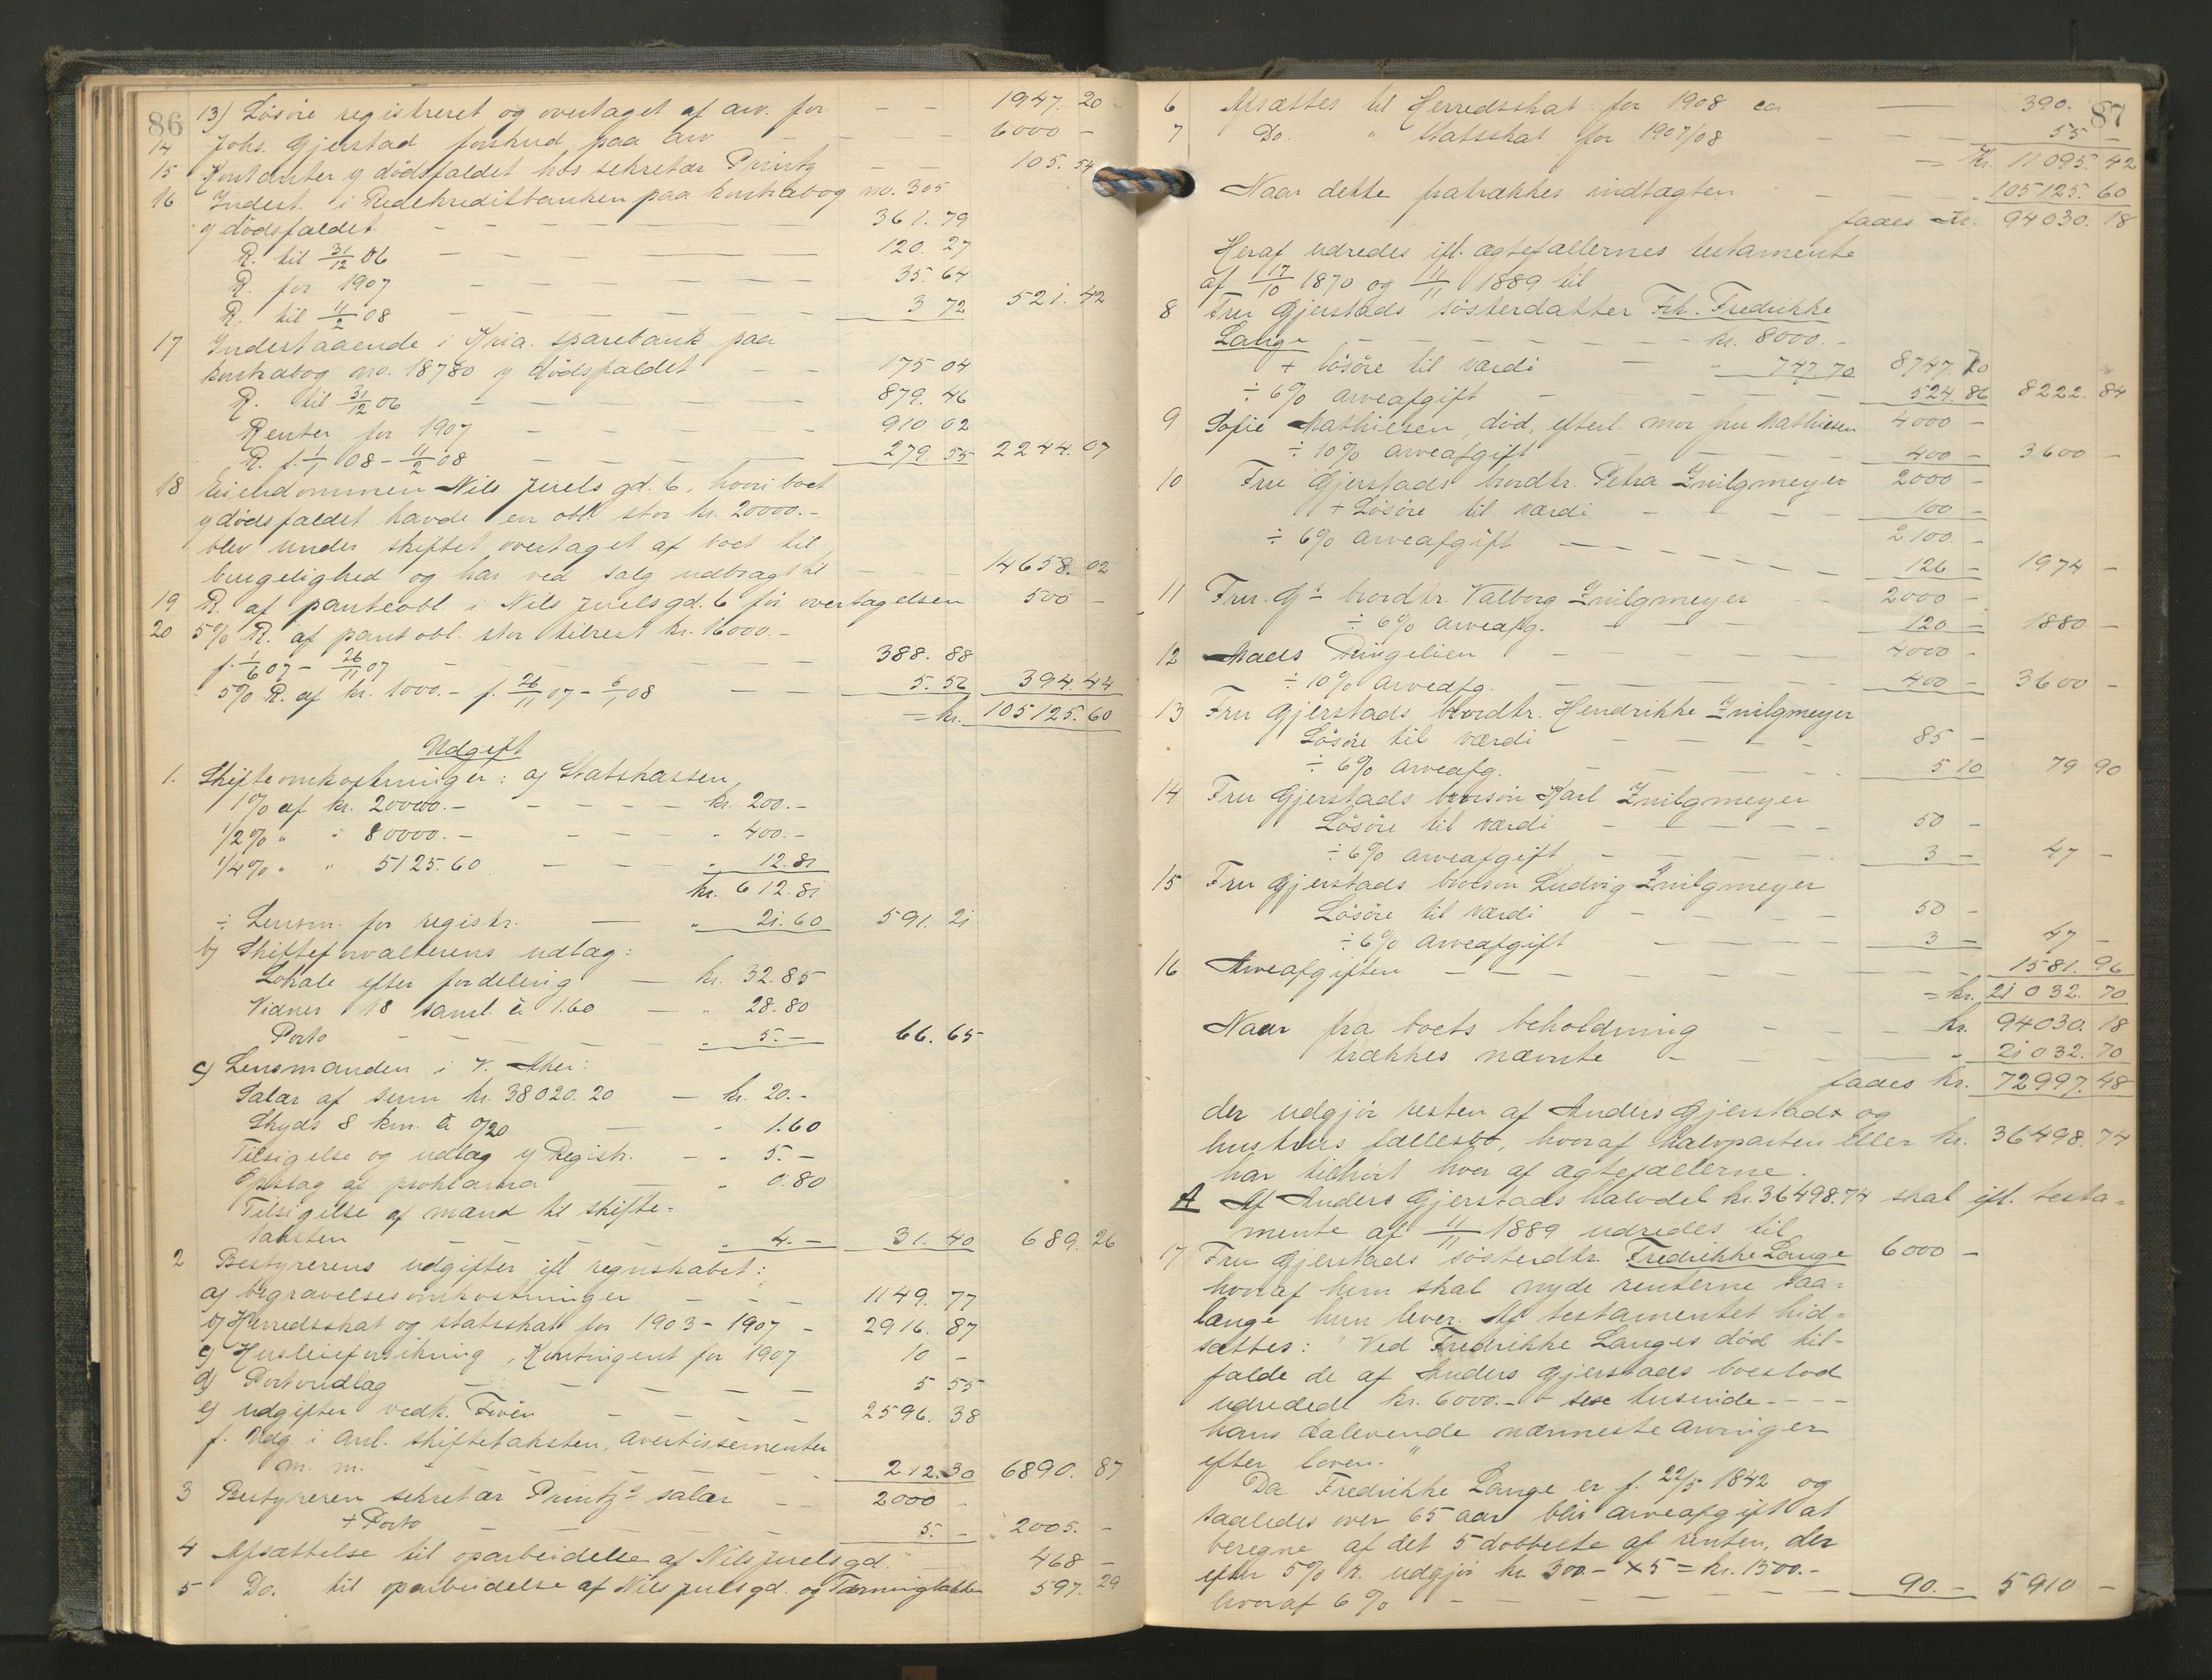 86
13) Løsøre registreret og overtaget af arv. for — — 1947. 20
14 Johs. Gjerstad forskud paa arv — — — 6000 —
15 Kontanter v dødsfaldet hos sekretær Printz — — 105. 54
16 Indest. i Redekreditbanken paa kontrabog no. 305
v dødsfaldet — — — — — 361. 79
R. til 31/12 06 — — — — — 120. 27
R. for 1907 — — — — — 35. 64
R. til 11/2 08 — — — — — 3 72 521. 42
17 Indestaaende i Kria. sparebank paa
kontrabog no. 18780 v dødsfaldet — — 175 04
R. til 31/12 06 — — — — 879. 46
Renter for 1907 — — — — 910 02
R. f. 1/1 08 - 11/2 08 — — — — 279. 55 2244. 07
18 Eiendommen Nils Juels gd. 6, hvori boet
v dødsfaldet havde en obl. stor kr. 20000.-
blev under skiftet overtaget af boet til
brugelighed og har ved salg udbragt til — 14658. 02
19 R. af panteobl. i Nils Juelsgd. 6 før overtagelsen 500 —
20 5% R. af pant obl. stor tilrest kr. 16000.-
f. 1/6 07 - 26/11 07 — — — — 388. 88
5% R. af kr. 1000.- f. 26/11 07 - 6/1 08 — 5. 56 394. 44
= kr. 105125. 60
Udgift
1. Skifteomkostninger: a) Statskassen
1% af kr. 20000.- — — — — kr. 200.-
1/2% " " 80000.- — — — " 400.-
1/4% " " 5125.60 — — " 12.81
kr. 612.81
÷ Lensm. for registr. — " 21.60 591. 21
b) Skifteforvalterens udlæg:
Lokale efter fordeling — kr. 32.85
Vidner 18 saml. à 1.60 — " 28.80
Porto — — — " 5.- 66. 65
c) Lensmanden i V. Aker:
Salær af sum kr. 38020.20 — kr. 20.-
Skyds 8 km. à 0/20 — " 1.60
Tilsigelse og udlæg v Registr. — " 5.-
Opslag af proklama — " 0.80
Tilsigelse af mænd til skifte=
taksten — — — — " 4.- 31. 40 689. 26
2 Bestyrerens udgifter ifl regnskabet:
a) begravelsesomkostninger — — — 1149. 77
b) Herredsskat og statsskat for 1903 - 1907 — 2916. 87
c) Husleieforsikring, Kontingent for 1907 10 —
d) Portoudlæg — — — — — 5 55
e) udgifter vedk. — — — — 2596. 38
f. Udg. i anl. skiftetaksten, avertissementer
m. m. — — — — — 212. 30 6890. 87
3 Bestyreren sekretær Printz's salær — — 2000 —
+ Porto — — — — — 5. — 2005. —
4 Afsættelse til oparbeidelse af Nils Juelsgd. — 468 —
5 Do. til oparbeidelse af Nils Juelsgd. og 597. 29
87
6 Afsættes til Herredsskat for 1908 ca — 390. —
7 Do. " Statsskat for 1907/08 — — — 55 —
= Kr. 11095. 42
Naar dette fratrækkes indtægten — — " 105125. 60
faaes Kr. 94030. 18
Heraf udredes ifl. ægtefællernes testamente
af 17/10 1870 og 11/11 1889 til
8 Fru Gjerstads søsterdatter Frk. Fredrikke
Lange — — — — — kr. 8000.-
+ løsøre til værdi — " 747.70 8747. 70
÷ 6% arveafgift — — — — 524. 86 8222. 84
9 Sofie Mathiesen, død, efterl. mor fru Mathiesen 4000 —
÷ 10% arveafgift — — 400 — 3600 —
10 Fru Gjerstads brordtr. Petra Zwilgmeyer 2000 —
+ Løsøre til værdi — — — 100 —
2100. —
÷ 6% arveafgift — — — — 126 — 1974 —
11 Fru. G's brordtr. Valborg Zwilgmeyer — 2000 —
÷ 6% arveafg. — — — 120 — 1880 —
12 Mads — — — 4000 —
÷ 10% arveafg. — — — — 400 — 3600 —
13 Fru Gjerstads brordtr. Hendrikke Zwilgmeyer
Løsøre til værdi — — — — 85 —
÷ 6% arveafg. — — — — 5 10 79 90
14 Fru Gjerstads brorsøn Karl Zwilgmeyer
Løsøre til værdi — — — — 50 —
÷ 6% arveafgift — — — — 3 — 47 —
15 Fru Gjerstads brorsøn Ludvig Zwilgmeyer
Løsøre til værdi — — — — 50 —
÷ 6% arveafgift — — — — 3 — 47 —
16 Arveafgiften — — — — — — 1581. 96
= kr. 21032. 70
Naar fra boets beholdning — — — kr. 94030. 18
trækkes nævnte — — — " 21032. 70
faaes kr. 72997. 48
der udgjør resten af Anders Gjerstads og
hustrus fællesbo, hvoraf halvparten eller kr. 36498. 74
har tilhørt hver af ægtefællerne.
A Af Anders Gjerstads halvdel kr. 36498.74 skal ifl. testa=
mente af 11/11 1889 udredes til
17 Fru Gjerstads søsterdtr. Fredrikke Lange 6000 —
hvoraf hun skal nyde renterne saa=
længe hun lever. Af testamentet hid=
sættes: "Ved Fredrikke Langes død til-
falde de af Anders Gjerstads boeslod
udredede kr. 6000.- - sex tusinde - - - -
hans dalevende nærmeste arvinger
efter loven."
Da Fredrikke Lange er f. 22/5 1842 og
saaledes over 65 aar blir arveafgift at
beregne af det 5 dobbelte af renten, der
efter 5% r. udgjør kr 300.- x 5 = kr. 1500.-
hvoraf 6% — — — — — — 90. — 5910 —